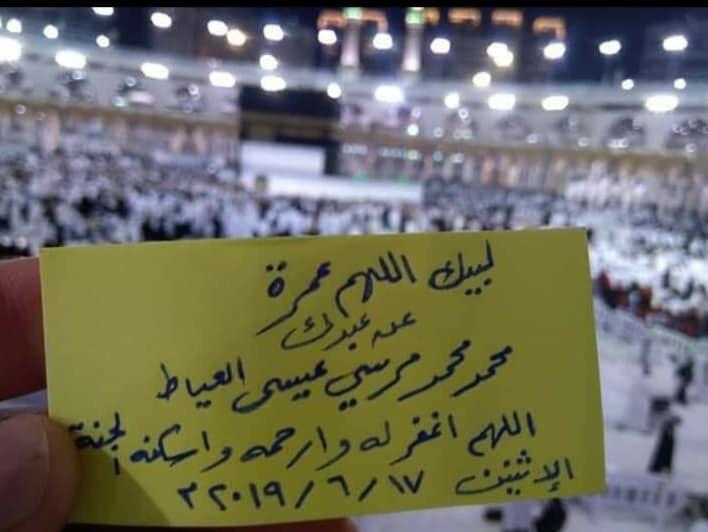 لبيك اللهم عمرة
عن عبدك
محمد محمد مرسي عيسى العياط
اللهم اغفر له وارحمه واسكنه الجنة
الإثنين ١٧/٦/٢٠١٩ م